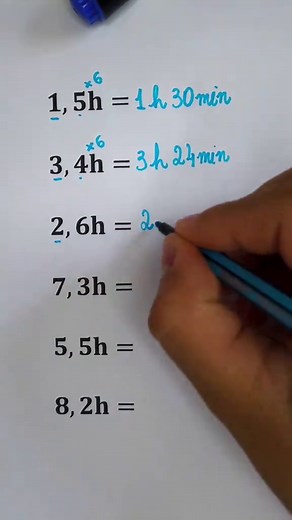 ×6
1,5h = 1h 30min
×6
3,4h = 3h 24min
2,6h = 2
7,3h =
5,5h =
8,2h =